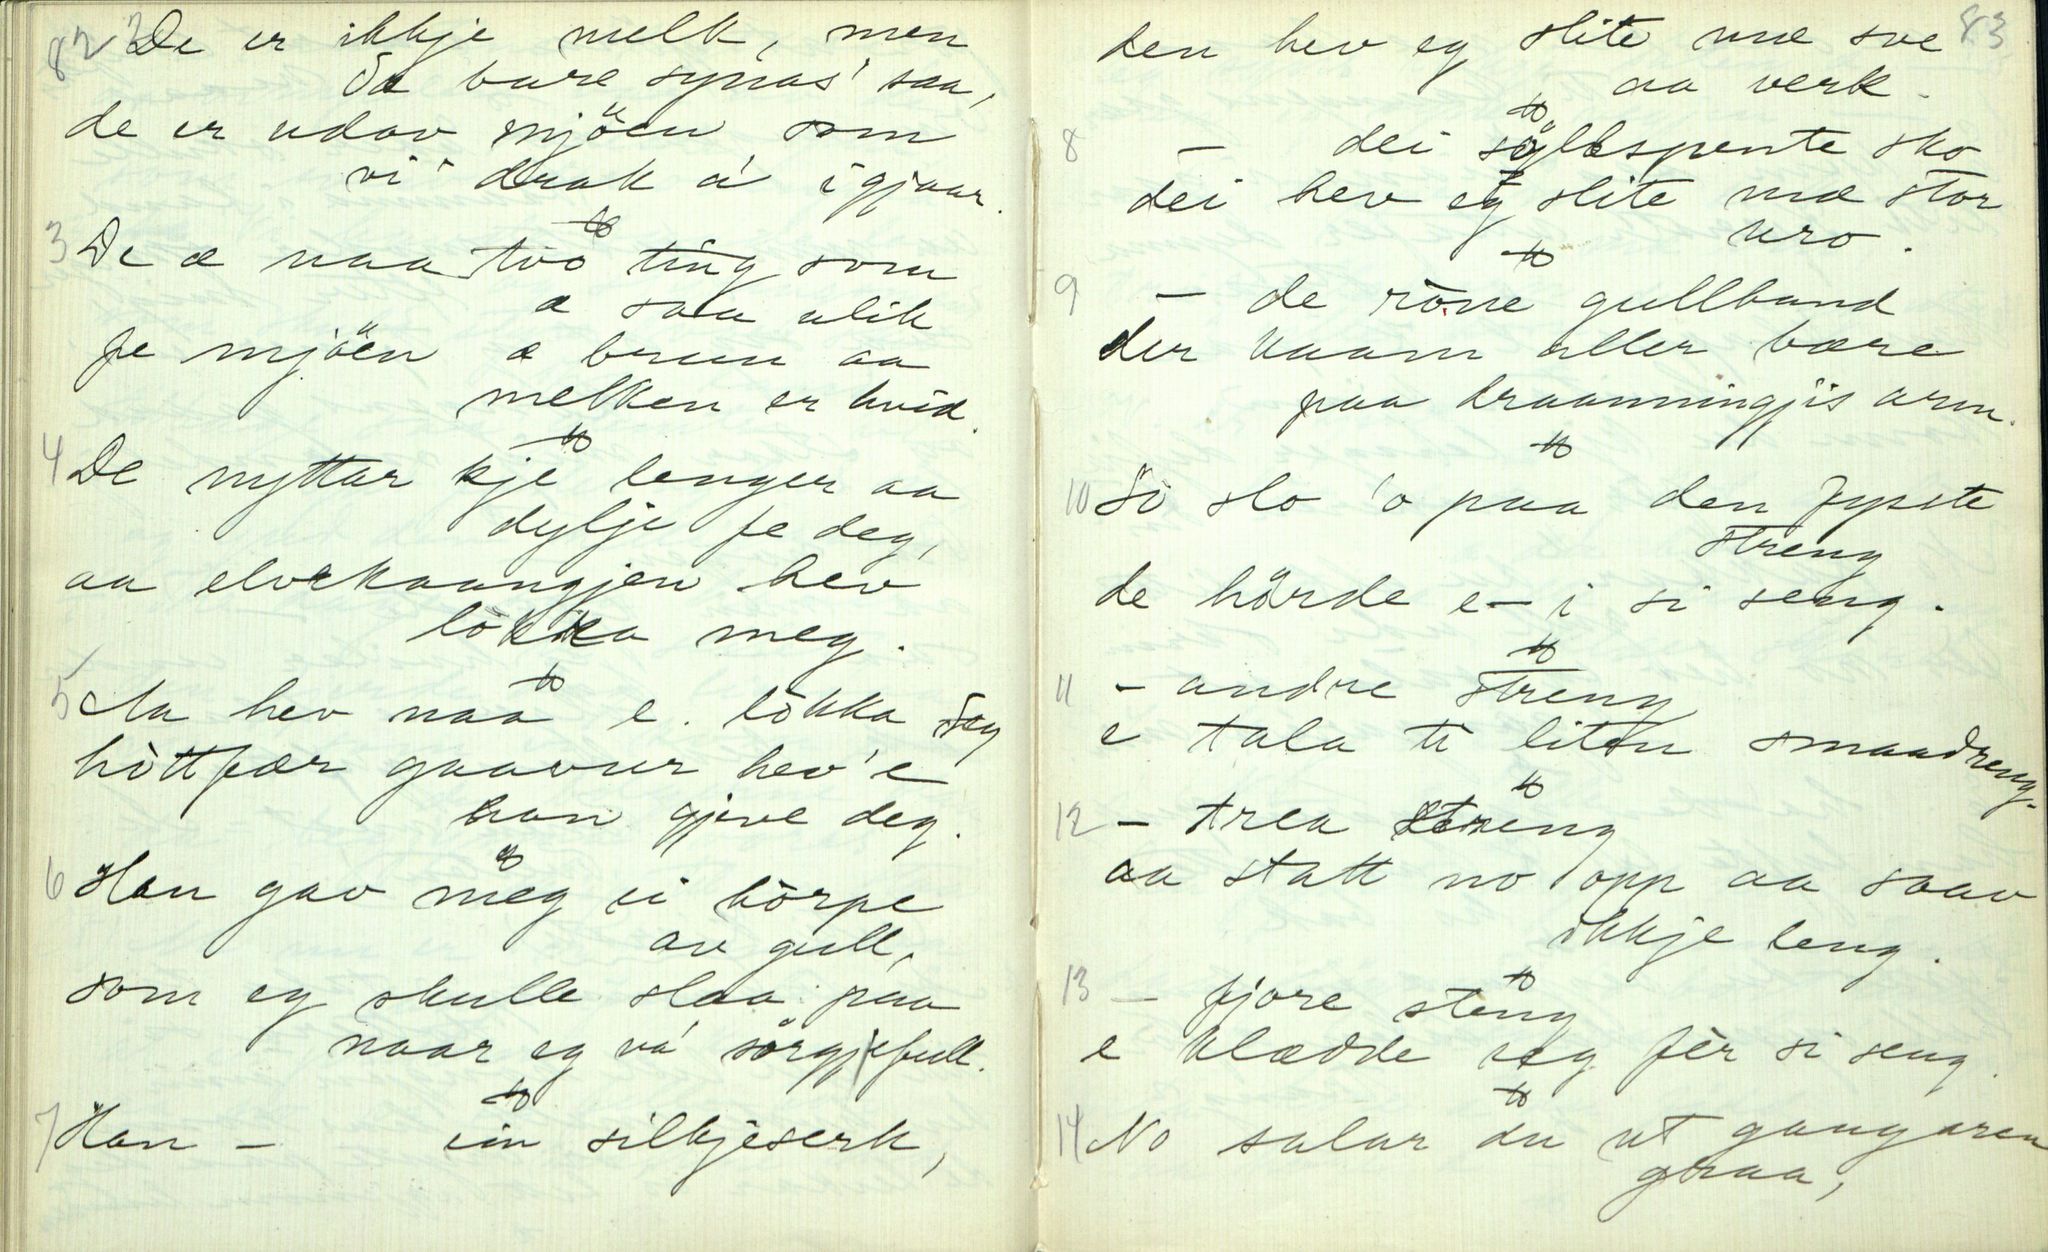 82
2 De er ikkje melk, men
de bare synas' saa,
de er udav mjöen som
vi drak á igjaar.
3 De æ naa tvo ting som
æ saa ulik
fe mjöen æ brun aa
melken er hvid.
4 De nyttar kje lenger aa
dylje fe deg,
aa elvekaangjen hev
lòkka meg.
5 Aa hev naa e. lòkka deg
hòttfær gaavur hev'e
han gjeve deg.
6 Han gav meg ei hòrpe
av gull,
som eg skulle slaa paa
naar eg vá sörgjefull.
7 Han – ein silkjeserk,
83
den hev eg slite mæ sve
aa verk.
8 – dei sylvspente sko
dei hev eg slite mæ stor
uro.
9 – de röne gullband
der kaam aller være
paa draanningjis arm.
10 So slo 'o paa den fyste
streng
de hörde e – i si seng.
11 – andre streng
e tala ti liten smaadreng.
12 – trea streng
aa statt no opp aa saav
ikkje leng.
13 – fjore steng
e klædde seg fèr si seng.
14 No salar du ut gangaren
graa,